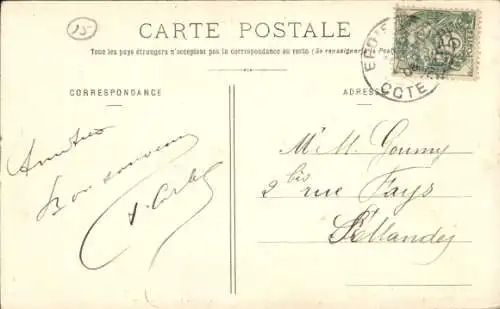 15
CARTE POSTALE
Tous les pays étrangers n'acceptent pas la correspondance au recto (Se renseigner à la Poste)
CORRESPONDANCE
ADRESSE
Amitiés
Bon souvenir
Mr M. Goumy
2 bis rue Fays
St Mandé
COTE